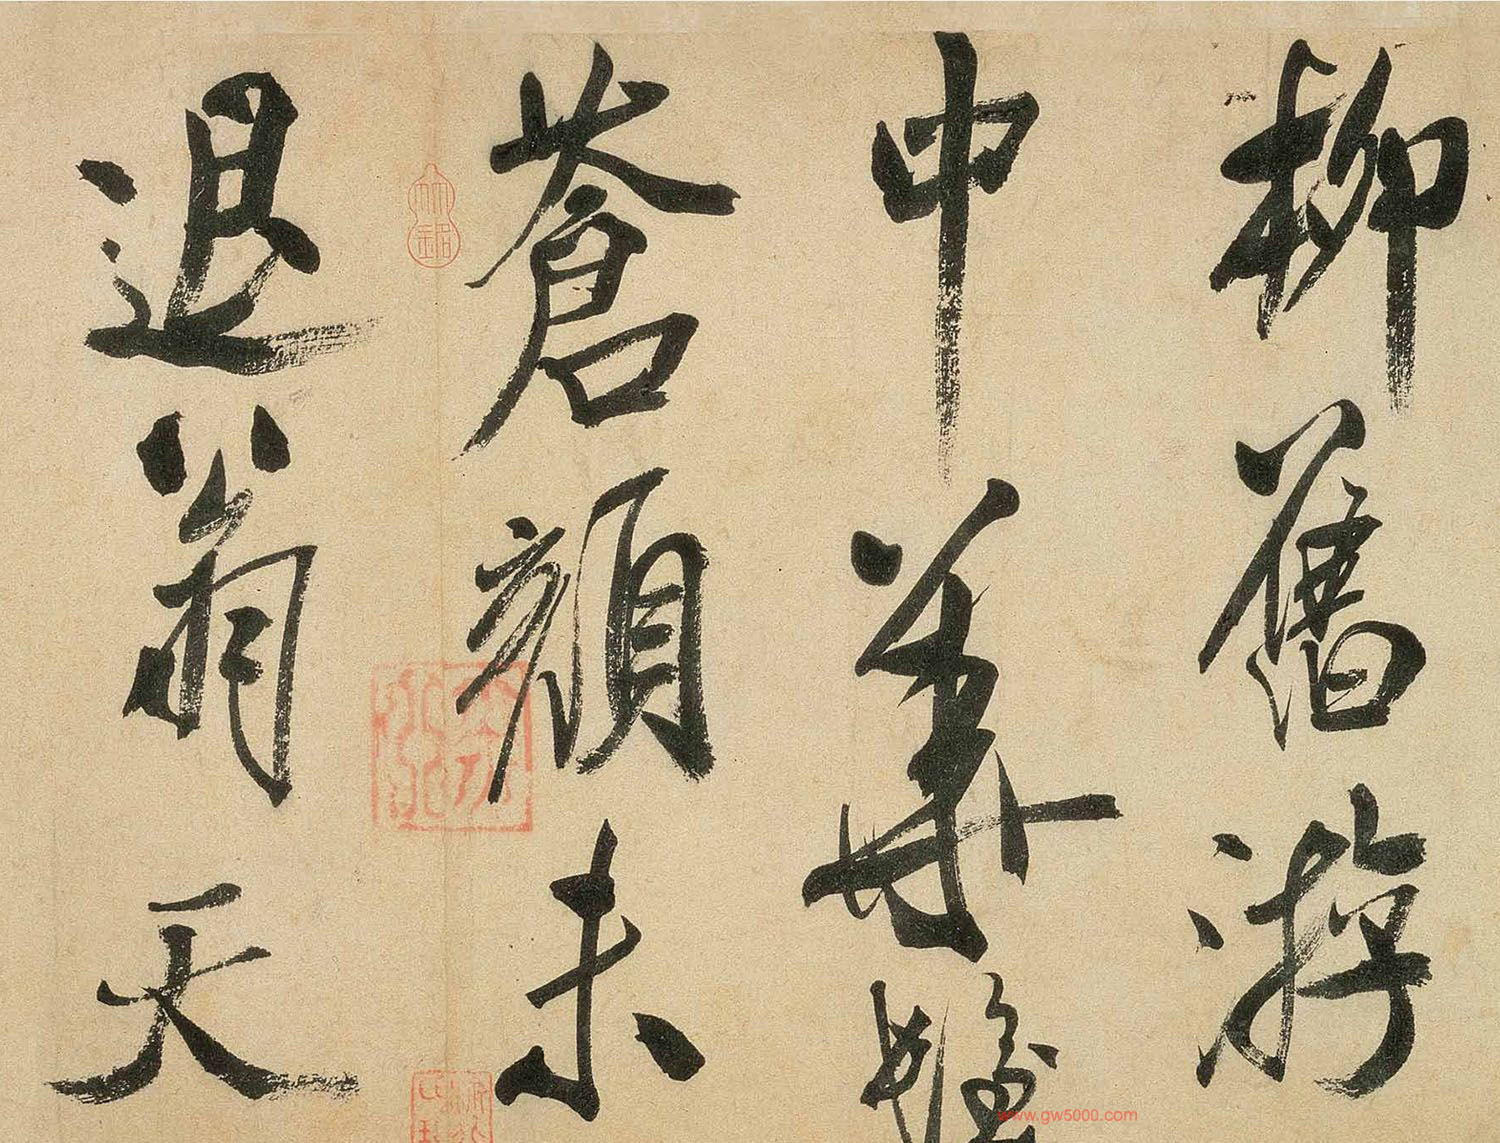 柳舊游
中華髮
蒼顏未
退翁天
www.gw5000.com